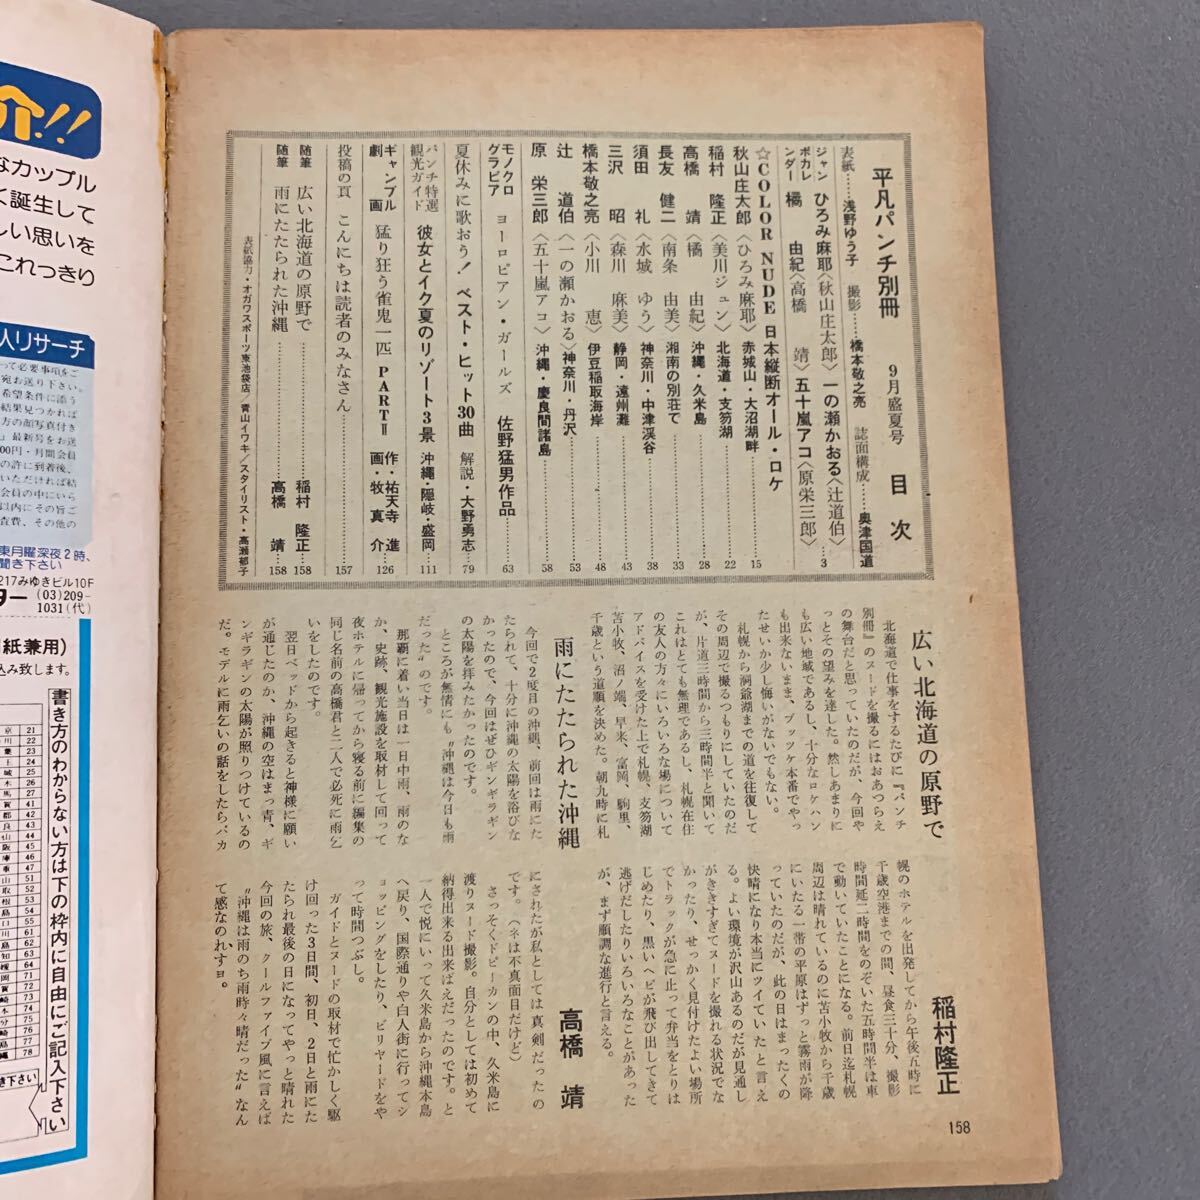 平凡パンチ別冊 9月盛夏号 目次
表紙……浅野ゆう子 撮影……橋本敬之亮 誌面構成……奥津国道
ジャンボカレンダー ひろみ麻耶〈秋山庄太郎〉 一の瀬かおる〈辻道伯〉
橘 由紀〈高橋 靖〉 五十嵐アコ〈原栄三郎〉……3
☆COLOR NUDE 日本縦断オール・ロケ
秋山庄太郎〈ひろみ麻耶〉赤城山・大沼湖畔……15
稲村 隆正〈美川ジュン〉北海道・支笏湖……22
高橋 靖〈橘 由紀〉沖縄・久米島……28
長友 健二〈南条 由美〉湘南の別荘で……33
須田 礼〈水城 ゆう〉神奈川・中津渓谷……38
三沢 昭〈森川 麻美〉静岡・遠州灘……43
橋本敬之亮〈小川 恵〉伊豆稲取海岸……48
辻 道伯〈一の瀬かおる〉神奈川・丹沢……53
原 栄三郎〈五十嵐アコ〉沖縄・慶良間諸島……58
モノクログラビア ヨーロピアン・ガールズ 佐野猛男作品……63
夏休みに歌おう! ベスト・ヒット30曲 解説・大野勇志……79
パンチ特選観光ガイド 彼女とイク夏のリゾート3景 沖縄・隠岐・盛岡……111
ギャンブル劇画 猛り狂う雀鬼一匹 PARTⅡ 作・祐天寺 進 画・牧 真介……126
投稿の頁 こんにちは読者のみなさん……157
随筆 広い北海道の原野で……稲村 隆正……158
随筆 雨にたたられた沖縄……高橋 靖……158
表紙協力・オガワスポーツ東池袋店/青山イワキ/スタイリスト・高瀬郁子
広い北海道の原野で
稲村隆正
北海道で仕事をするたびに『パンチ
別冊』のヌードを撮るにはおあつらえ
の舞台だと思っていたのだが、今回や
っとその望みを達した。然しあまりに
も広い地域であるし、十分なロケハン
も出来ないまま、ブッツケ本番でやっ
たせいか少し悔いがないでもない。
札幌から洞爺湖までの道を往復して
その周辺で撮るつもりにしていたのだ
が、片道三時間から三時間半と聞いて
これはとても無理であるし、札幌在住
の友人の方々にいろいろな場について
アドバイスを受けた上で札幌、支笏湖
苫小牧、沼ノ端、早来、富岡、駒里、
千歳という道順を決めた。朝九時に札
幌のホテルを出発してから午後五時に
千歳空港までの間、昼食三十分、撮影
時間延二時間をのぞいた五時間半は車
で動いていたことになる。前日迄札幌
周辺は晴れているのに苫小牧から千歳
にいたる一帯の平原はずっと霧雨が降
っていたのだが、此の日はまったくの
快晴になり本当にツイていたと言え
る。よい環境が沢山あるのだが見通し
がききすぎてヌードを撮れる状況でな
かったり、せっかく見付けたよい場所
でトラックが急に止って弁当をとりは
じめたり、黒いヘビが飛び出してきて
逃げだしたりいろいろなことがあった
が、まず順調な進行と言える。
雨にたたられた沖縄
高橋 靖
今回で2度目の沖縄、前回は雨にた
たられて、十分に沖縄の太陽を浴びな
かったので、今回はぜひギンギラギン
の太陽を拝みたかったのです。
ところが無情にも〝沖縄は今日も雨
だった〟のです。
那覇に着いた当日は一日中雨、雨のな
か、史跡、観光施設を取材して回って
夜ホテルに帰ってから寝る前に編集の
同じ名前の高橋君と二人で必死に雨乞
いをしたのです。
翌日ベッドから起きると神様に願い
が通じたのか、沖縄の空はまっ青、ギ
ンギラギンの太陽が照りつけているの
だ。モデルに雨乞いの話をしたらバカ
にされたが私としては真剣だったの
です。(ネは不真面目だけど)
さっそくドピーカンの中、久米島に
渡りヌード撮影。自分としては初めて
納得出来る出来ばえだったのです。と
一人で悦にいって久米島から沖縄本島
へ戻り、国際通りや白人街に行ってシ
ョッピングをしたり、ビリヤードをや
って時間つぶし。
ガイドとヌードの取材で忙がしく駆
け回った3日間、初日、2日と雨にた
たられ最後の日になってやっと晴れた
今回の旅、クールファイブ風に言えば
〝沖縄は雨のち雨時々晴だった〟なん
て感なのれすョ。
158
介!!
なカップル
く誕生して
しい思いを
これっきり
人リサーチ
東月曜深夜2時、
聞き下さい
217みゆきビル10F
ター (03)209-
1031(代)
紙兼用)
込み致します。
書き方のわからない方は下の枠内に自由にご記入下さい
き下さい